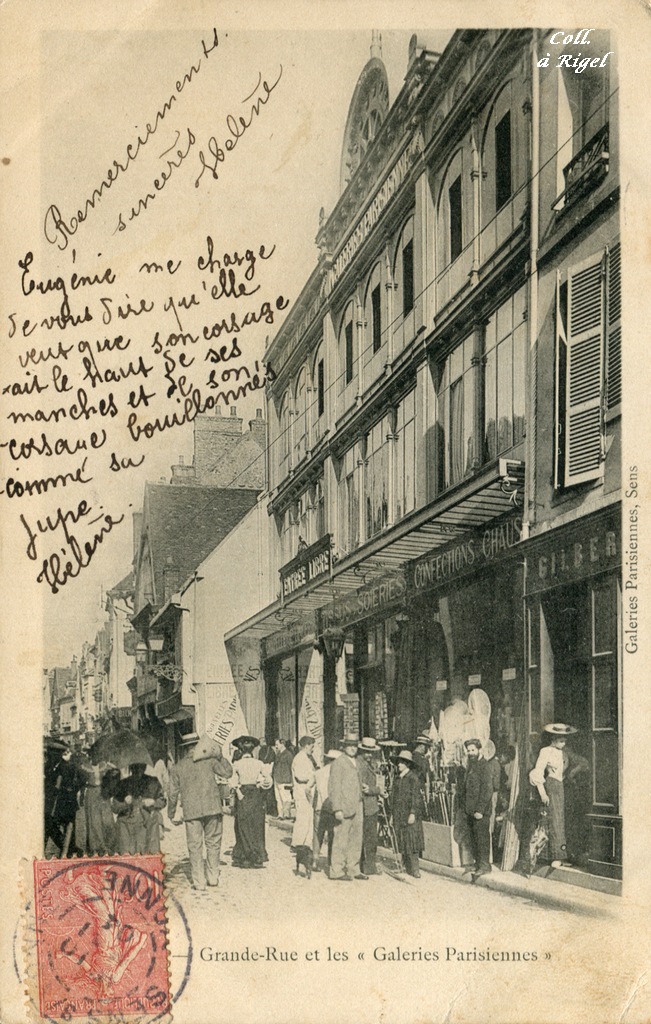 Coll.
à Rigel
Remerciements
sincères
Helène
Eugénie me charge
de vous dire qu'elle
veut que son corsage
ait le haut de ses
manches et de son
corsage bouillonnés
comme sa
jupe.
Hélène.
ENTRÉE LIBRE
SOIERIES
CONFECTIONS CHAUS
GILBER
Galeries Parisiennes, Sens
POSTES
YONNE
Grande-Rue et les « Galeries Parisiennes »